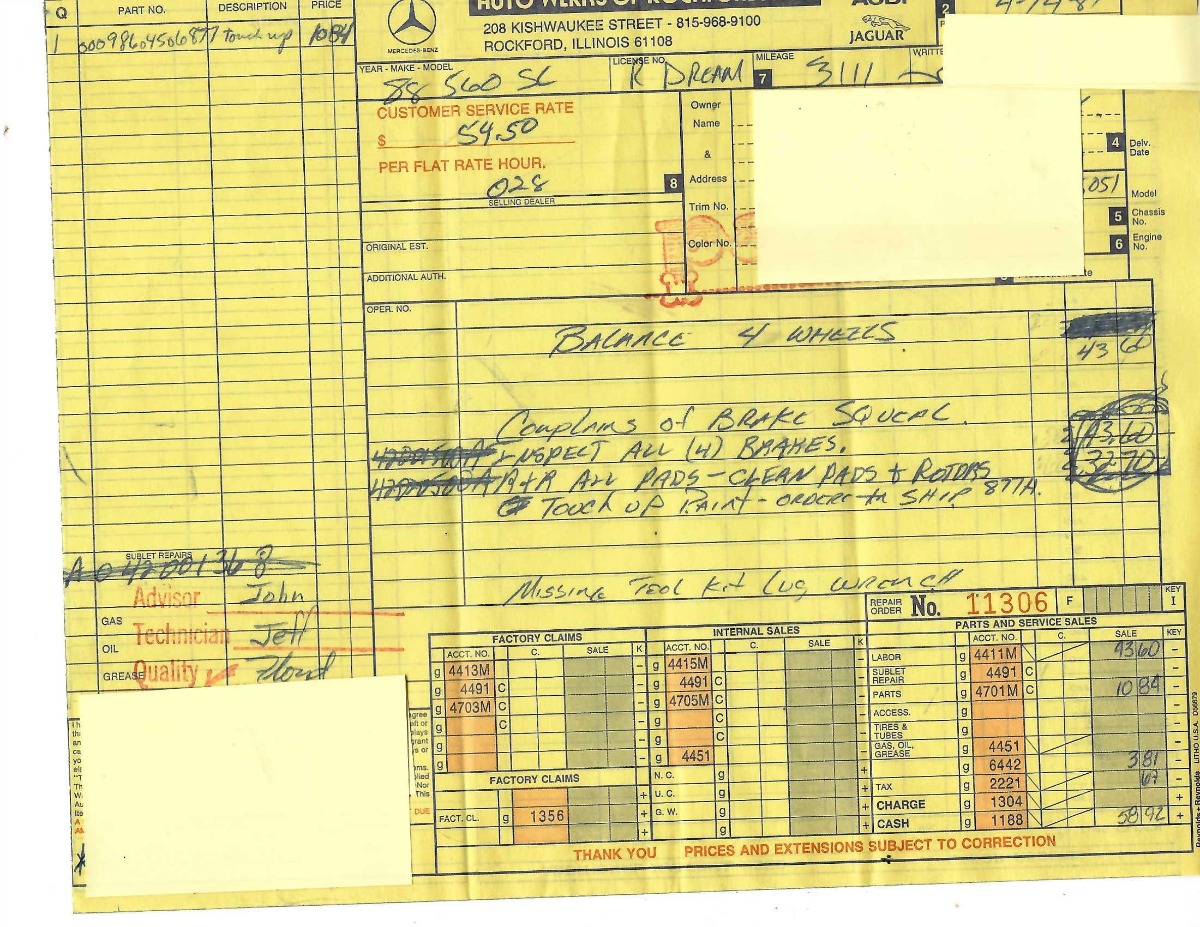 Q PART NO. DESCRIPTION PRICE
1 Touch up 10 84
MERCEDES-BENZ
AUTO WERKS OF ROCKFORD
208 KISHWAUKEE STREET - 815-968-9100
ROCKFORD, ILLINOIS 61108
JAGUAR
2
YEAR - MAKE - MODEL
88 560 SL
LICENSE NO.
R DREAM
MILEAGE
7 3111
CUSTOMER SERVICE RATE
$ 54.50
PER FLAT RATE HOUR.
028
SELLING DEALER
8
ORIGINAL EST.
ADDITIONAL AUTH.
Owner
Name
&
Address
Trim No.
Color No.
4 Delv. Date
051 Model
5 Chassis No.
6 Engine No.
OPER. NO.
BALANCE 4 WHEELS
43 60
Complains of BRAKE SQUEAL
INSPECT ALL (4) BRAKES. 43.60
R+R ALL PADS - CLEAN PADS & ROTORS 32.70
TOUCH UP PAINT - ORDER SHIP 87TH.
MISSING TOOL KIT LUG WRENCH
SUBLET REPAIRS
Advisor John
GAS
Technician Jeff
OIL
GREASE
Quality Floyd
REPAIR ORDER No. 11306 F KEY I
FACTORY CLAIMS
ACCT. NO. C. SALE K
g 4413M -
g 4491 C -
g 4703M -
g C -
g -
g -
FACTORY CLAIMS
+
FACT. CL. g 1356 +
+
INTERNAL SALES
ACCT. NO. C. SALE K
g 4415M -
g 4491 C -
g 4705M -
g C -
g C -
g 4451 -
N. C. g +
U. C. g +
G. W. g +
g +
PARTS AND SERVICE SALES
ACCT. NO. C. SALE KEY
LABOR g 4411M 43 60 -
SUBLET REPAIR g 4491 C -
PARTS g 4701M C 10 84 -
ACCESS. g -
TIRES & TUBES g -
GAS, OIL, GREASE g 4451 -
g 6442 3 81 -
TAX g 2221 67 -
CHARGE g 1304 +
CASH g 1188 58 92 +
THANK YOU PRICES AND EXTENSIONS SUBJECT TO CORRECTION